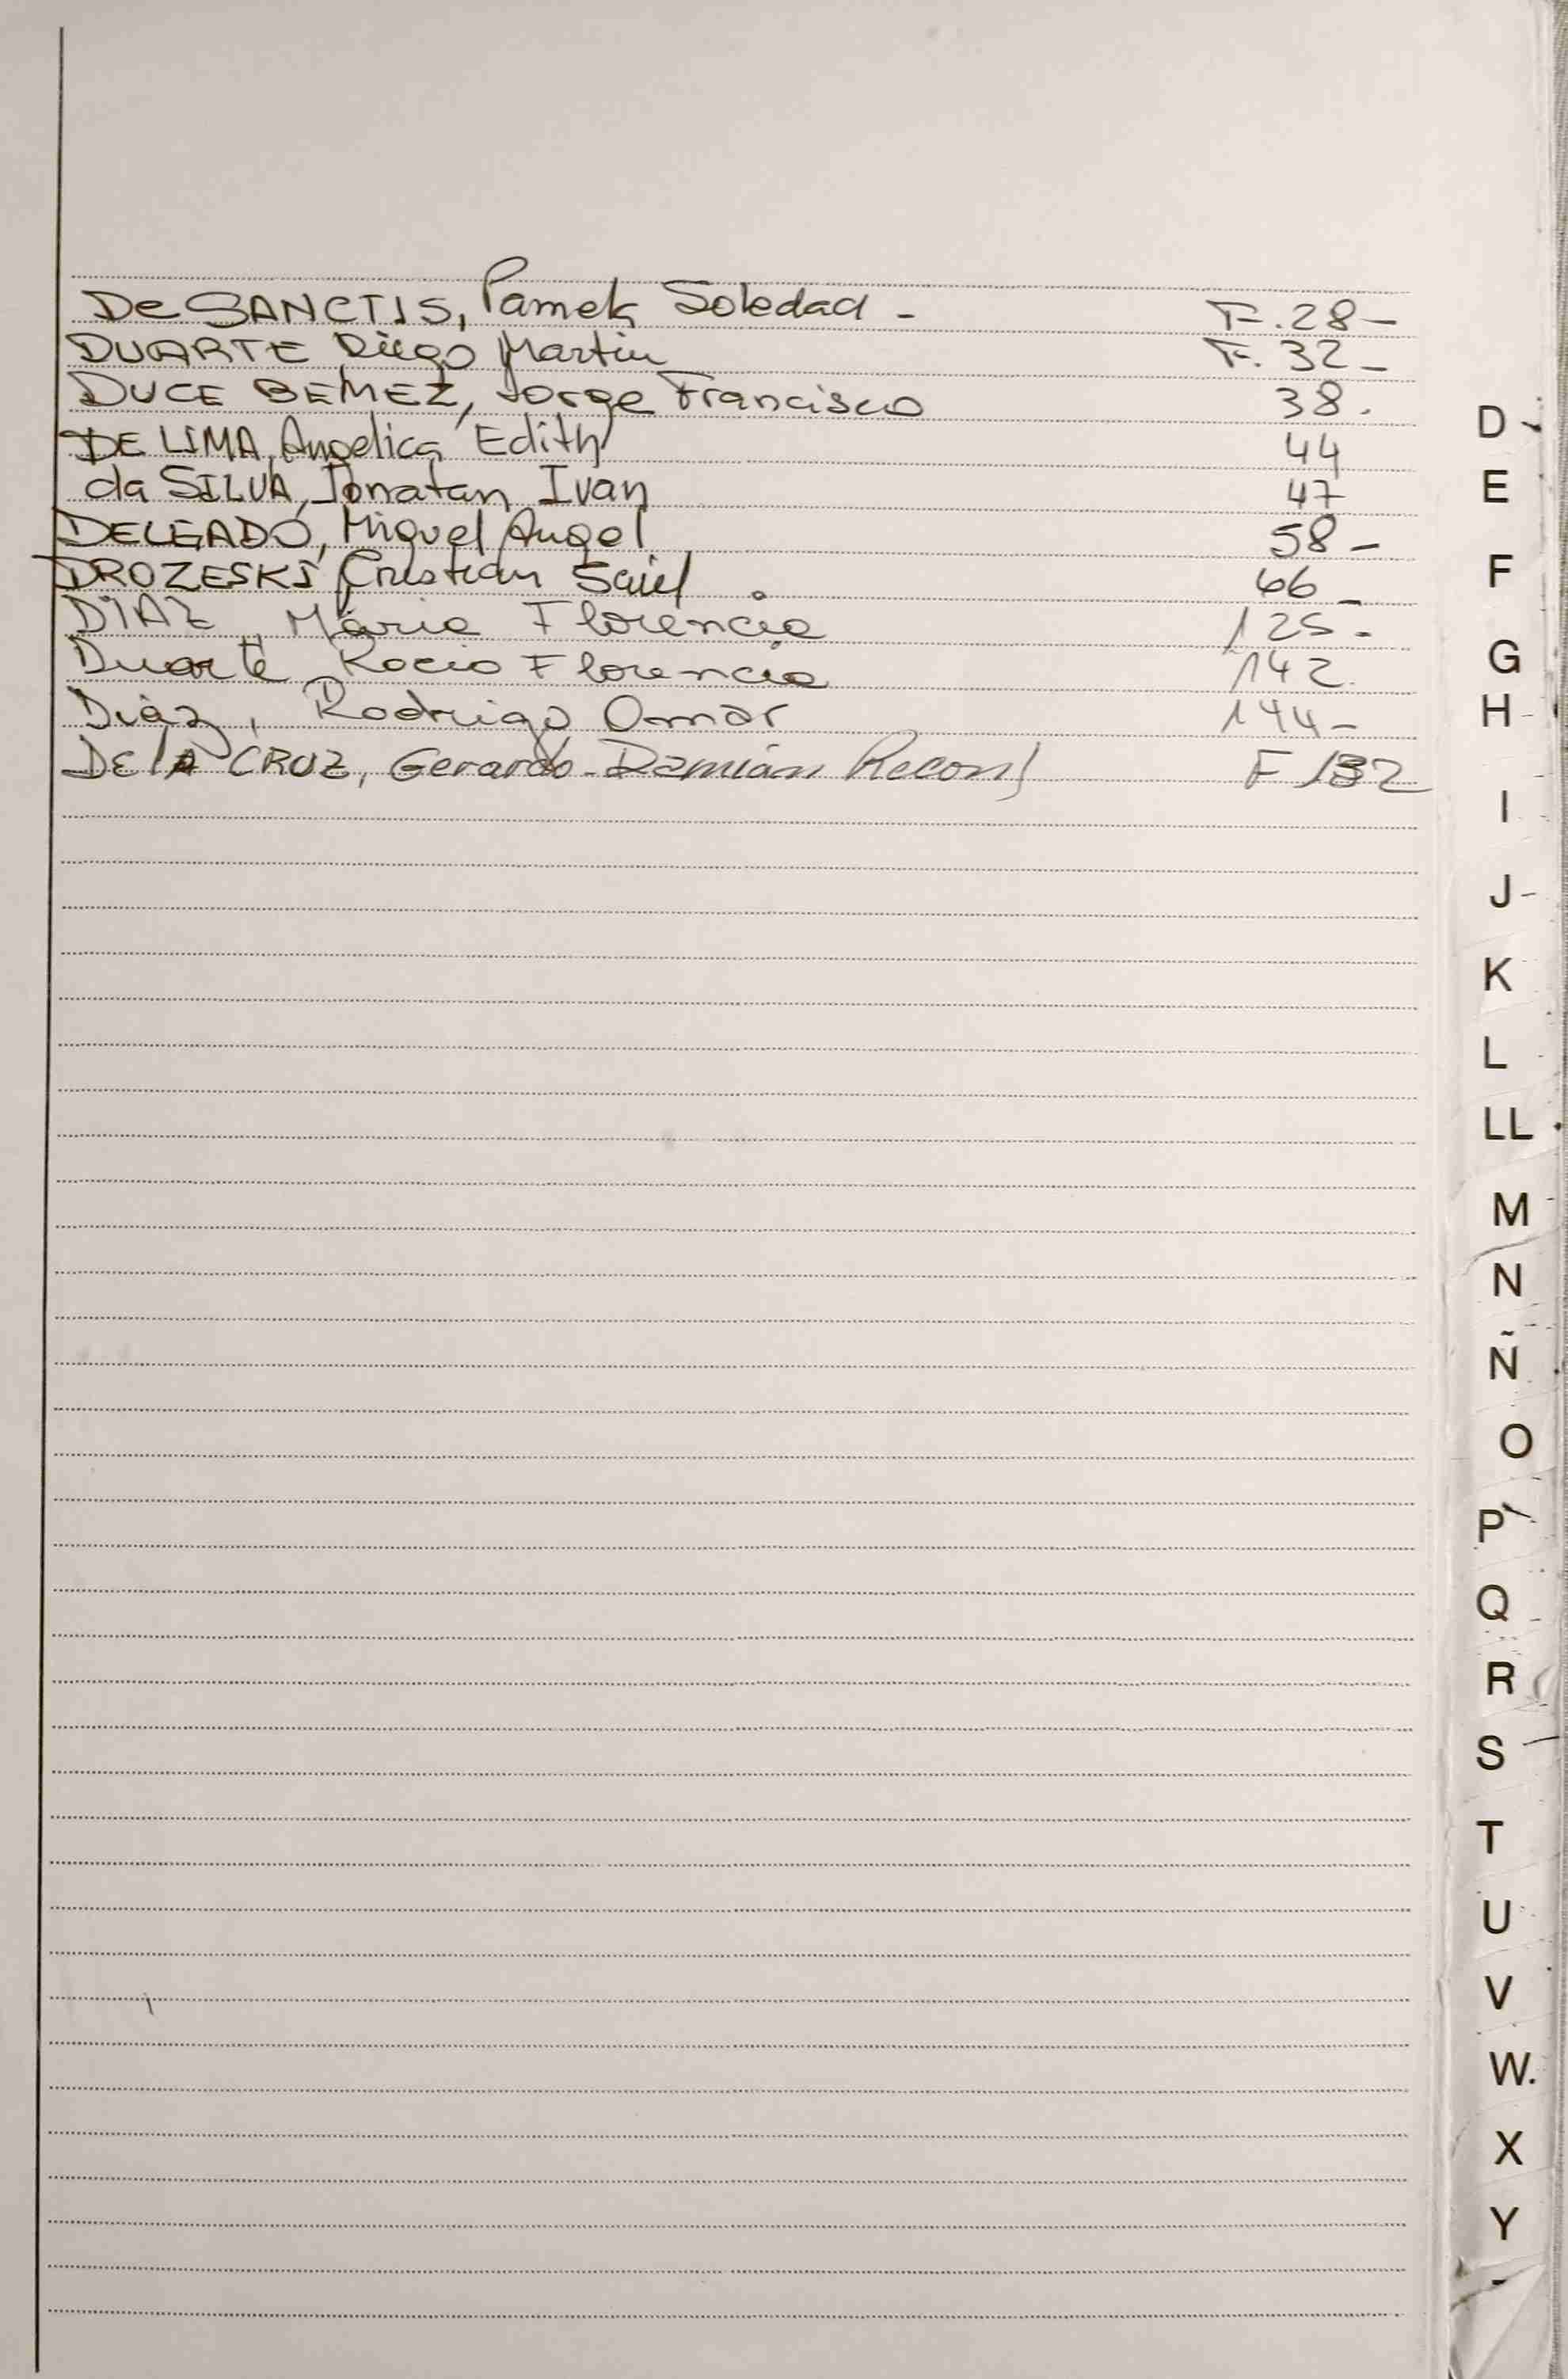 De SANCTIS, Pamela Soledad - F. 28 -
DUARTE Diego Martin F. 32 -
DUCE BEMEZ, Jorge Francisco 38.
DE LIMA, Angelica Edith 44
da SILVA, Jonatan Ivan 47
DELGADO, Miguel Angel 58 -
DROZESKI, Cristian 66 -
DIAZ, Maria Florencia 125 -
Duarte Rocio Florencia 142.
Diaz, Rodrigo Omar 144 -
De lA CRUZ, Gerardo Damián F 132
D
E
F
G
H
I
J
K
L
LL
M
N
Ñ
O
P
Q
R
S
T
U
V
W.
X
Y